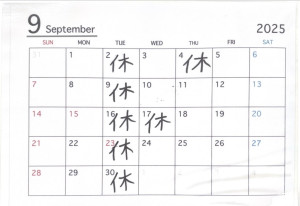 9 September 2025
SUN MON TUE WED THU FRI SAT
31 1 2休 3 4休 5 6
7 8 9休 10 11 12 13
14 15 16休 17休 18 19 20
21 22 23休 24 25 26 27
28 29 30休